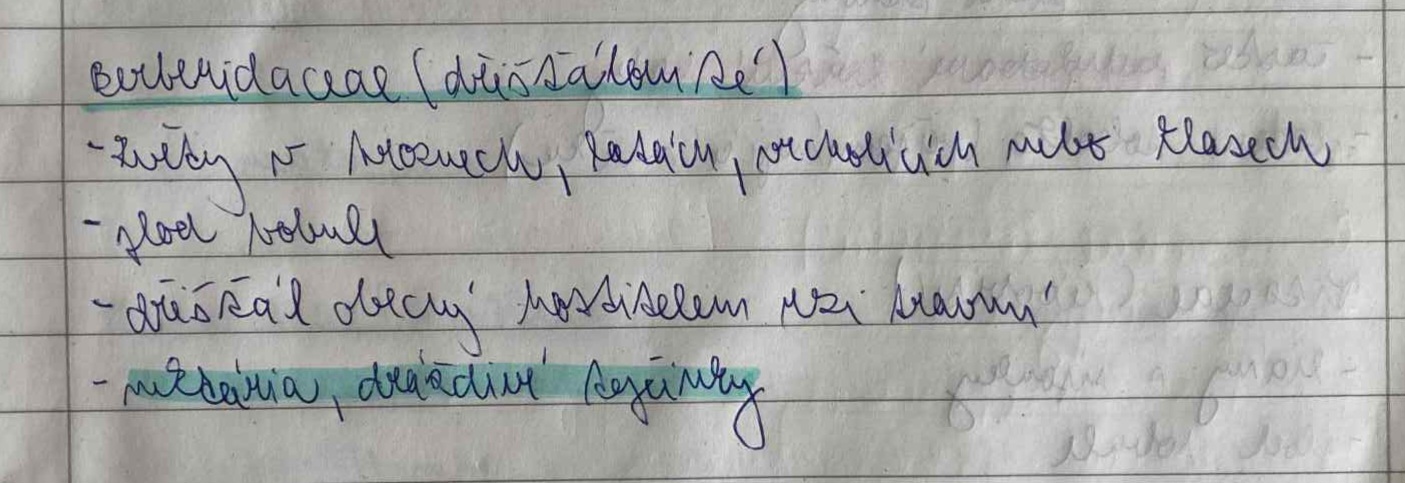 Berberidaceae (dřišťálovité)
- květy v hroznech, latách, vrcholících nebo klasech
- plod bobule
- dřišťál obecný hostitelem rzi travní
- nektária, dráždivé tyčinky